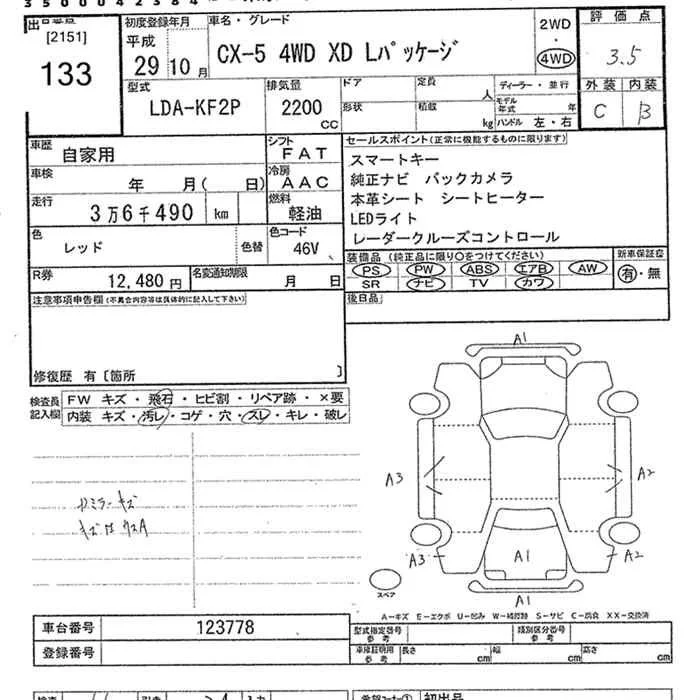 350042384
出品番号
[2151]
133
初度登録年月
平成
29 10 月
車名・グレード
CX-5 4WD XD Lパッケージ
2WD
・
4WD
評価点
3.5
外装 内装
C B
型式
LDA-KF2P
排気量
2200
CC
ドア
形状
定員
人
積載
kg
ディーラー・並行
モデル年式 年
ハンドル 左・右
車歴
自家用
シフト
FAT
車検
年 月( 日)
冷房
AAC
走行
3万6千490 km
燃料
軽油
色
レッド
色替
色コード
46V
R券
12,480円
名変通知期限
月 日
セールスポイント(正常に機能するものに限ります)
スマートキー
純正ナビ バックカメラ
本革シート シートヒーター
LEDライト
レーダークルーズコントロール
装備品(純正品に限り○をつけてください)
PS PW ABS エアB AW
SR ナビ TV カワ
新車保証症
有・無
後日品
注意事項申告欄(不具合内容等は具体的に記入して下さい)
修復歴 有〔箇所 〕
検査員記入欄
FW キズ・飛石・ヒビ割・リペア跡・×要
内装 キズ・汚レ・コゲ・穴・スレ・キレ・破レ
A1
A3
A2
A3
A1
A2
A1
スペア
A−キズ E−エクボ U−凹み W−補修跡 S−サビ C−腐食 XX−交換済
車台番号 123778
登録番号
型式指定番号
参考
類別区分番号
参考
車庫証明用
参考
長さ cm 幅 cm 高さ cm